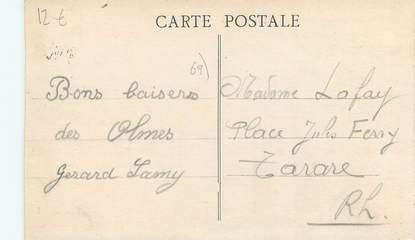 12 €
CARTE POSTALE
69)
Bons baisers
des Olmes
Gerard Lamy
Madame Lafay
Place Jules Ferry
Tarare
Rh.